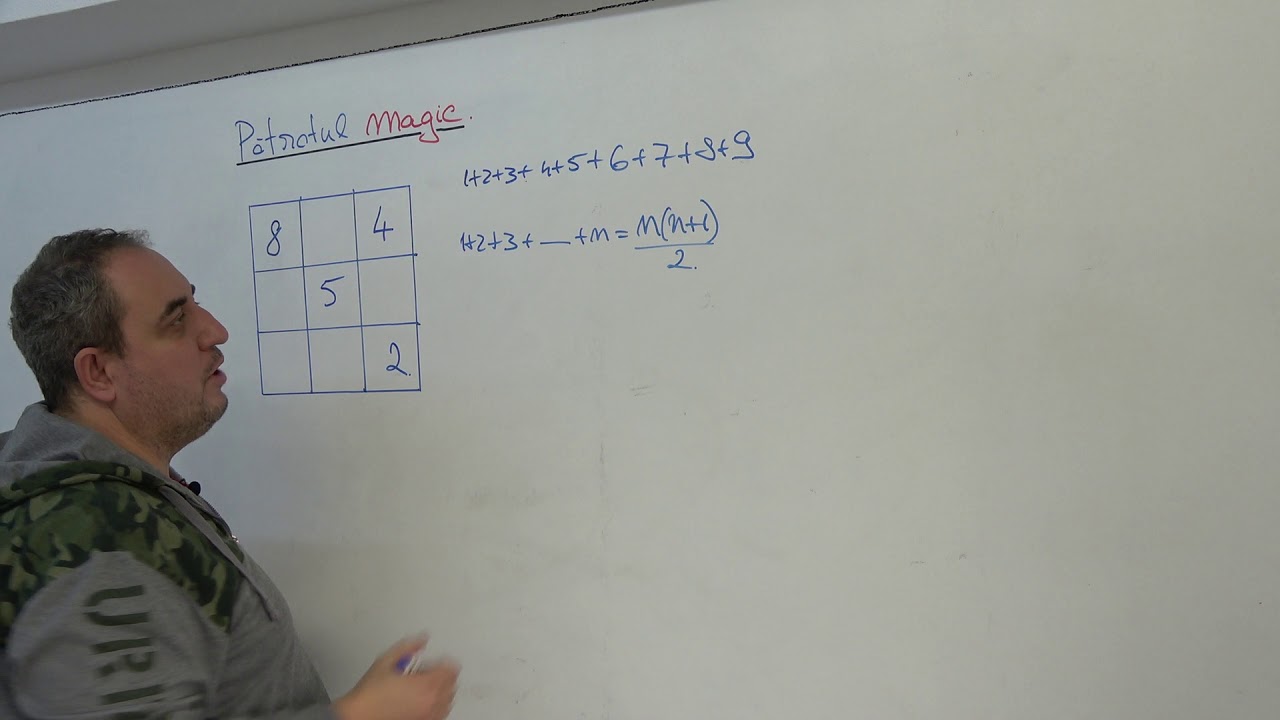 Pătratul Magic.
1+2+3+4+5+6+7+8+9
1+2+3+ — +n = n(n+1)
2.
8 4
5
2.